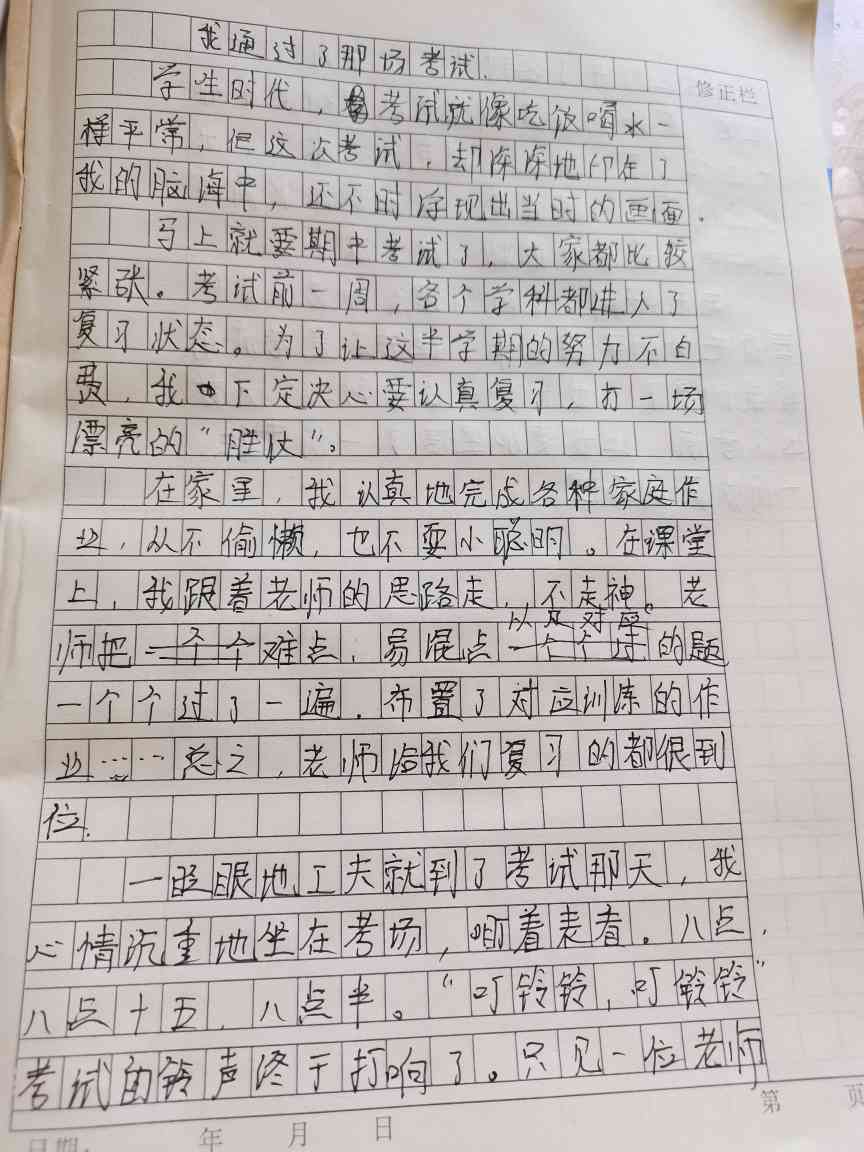 我通过了那场考试.
修正栏
学生时代，考试就像吃饭喝水一
样平常，但这次考试，却深深地印在了
我的脑海中，还不时浮现出当时的画面.
马上就要期中考试了，大家都比较
紧张。考试前一周，各个学科都进入了
复习状态。为了让这半学期的努力不白
费，我下定决心要认真复习，打一场
漂亮的“胜仗”。
在家里，我认真地完成各种家庭作
业，从不偷懒，也不耍小聪明。在课堂
上，我跟着老师的思路走，不走神。老
以及对应
师把难点、易混点的题
一个个过了一遍，布置了对应训练的作
业……总之，老师给我们复习的都很到
位.
一眨眼地工夫就到了考试那天，我
心情沉重地坐在考场，盯着表看。八点，
八点十五，八点半。“叮铃铃，叮铃铃”
考试的铃声终于打响了。只见一位老师
日期: 年 月 日
第 页